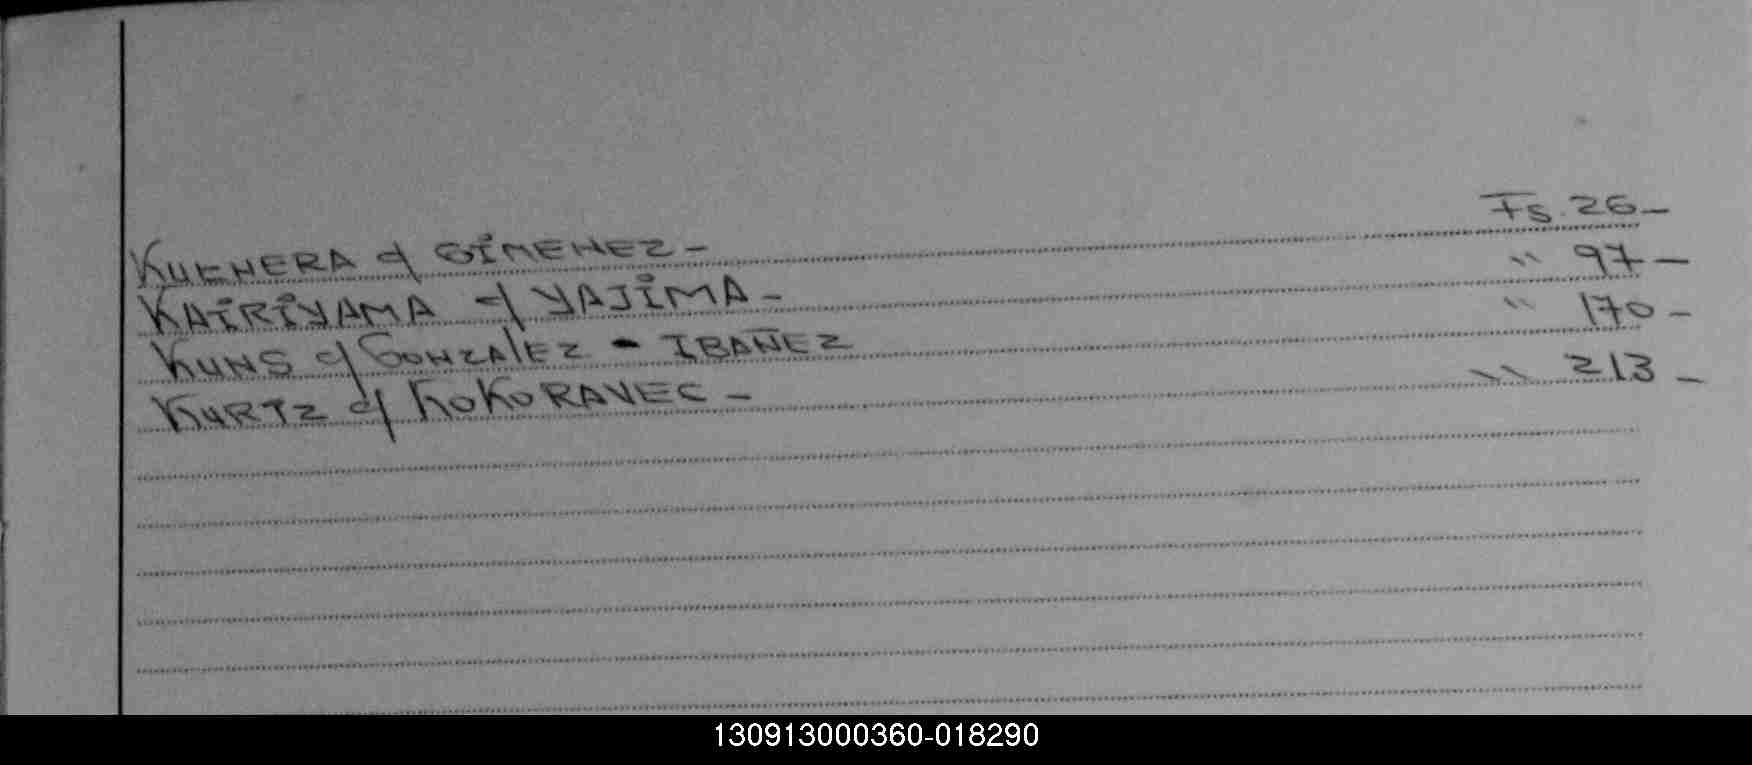 KUCHERA c/ GIMENEZ - Fs. 26 -
KAIRIYAMA c/ YAJIMA - " 97 -
KUNS c/ GONZALEZ - IBAÑEZ " 170 -
KURTZ c/ KOKORAVEC - " 213 -
130913000360-018290